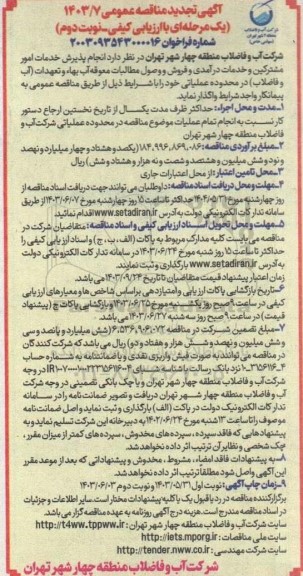 آگهی تجدید مناقصه عمومی ۱۴۰۳/۷
(یک مرحله‌ای با ارزیابی کیفی-نوبت دوم)
شماره فراخوان ۲۰۰۳۰۹۵۴۳۰۰۰۰۱۶
شرکت آب و فاضلاب منطقه چهار شهر تهران در نظر دارد انجام پذیرش خدمات امور
مشترکین و خدمات درآمدی و فروش و وصول مطالبات معوقه آب بهاء و تعهدات (آب
و فاضلاب) در محدوده عملیاتی خود را با شرایط ذیل از طریق مناقصه عمومی به
پیمانکار واجد شرایط واگذار نماید.
۱-مدت و محل اجراء: حداکثر ظرف مدت یکسال از تاریخ نخستین ارجاع دستور
کار نسبت به انجام تمام عملیات موضوع مناقصه در محدوده عملیاتی شرکت آب و
فاضلاب منطقه چهار شهر تهران
۲-مبلغ برآوردی مناقصه: ۱۸۴,۹۹۶,۸۶۹,۰۸۶ (یکصد و هشتاد و چهار میلیارد و نهصد
و نود و شش میلیون و هشتصد و شصت و نه هزار و هشتاد و شش) ریال
۳-محل تامین اعتبار: از محل اعتبارات جاری
۴-مهلت و محل دریافت اسناد مناقصه: داوطلبان می‌توانند جهت دریافت اسناد مناقصه از
روز چهارشنبه مورخ ۱۴۰۳/۰۵/۳۱ حداکثر تا ساعت ۱۵ روز چهارشنبه مورخ ۱۴۰۳/۰۶/۰۷ از طریق
سامانه تدارکات الکترونیکی دولت به آدرس www.setadiran.ir اقدام نمایند.
۵-مهلت و محل تحویل اسناد ارزیابی کیفی و اسناد مناقصه: متقاضیان شرکت در
مناقصه می‌بایست کلیه مدارک مربوط به پاکات (الف، ب، ج) و اسناد ارزیابی کیفی را
حداکثر تا ساعت ۱۵ روز شنبه مورخ ۱۴۰۳/۰۶/۲۴ در سامانه تدارکات الکترونیکی دولت
به آدرس www.setadiran.ir بارگذاری و ثبت نمایند.
زمان اعتبار پیشنهاد قیمت متقاضیان تا تاریخ ۱۴۰۳/۰۹/۲۴ می‌باشد.
۶-تاریخ بازگشایی پاکات ارزیابی و امتیازدهی براساس شاخص‌ها و معیارهای ارزیابی
کیفی در ساعت ۹ صبح روز یکشنبه مورخ ۱۴۰۳/۰۶/۲۵ و بازگشایی پاکات ج (پیشنهاد
قیمت) در ساعت ۹ صبح روز سه شنبه ۱۴۰۳/۰۶/۲۷ می‌باشد.
۷-مبلغ تضمین شرکت در مناقصه ۶,۵۳۶,۹۰۶,۰۷۲ (شش میلیارد و پانصد و سی
و شش میلیون و نهصد و شش هزار و هفتاد و دو) ریال می باشد که شرکت کنندگان
در مناقصه می‌توانند به صورت فیش واریزی نقدی و یا ضمانتنامه به شماره حساب
نزد بانک رسالت باشناسه شبای در وجه
شرکت آب و فاضلاب منطقه چهار شهر تهران و یا چک بانکی تضمینی در وجه شرکت
آب و فاضلاب منطقه چهار شهر تهران دریافت و تصویر ضمانت نامه را در سامانه
تدارکات الکترونیک دولت در پاکت (الف) بارگذاری و ثبت نماید و اصل ضمانت‌نامه
موصوف را تا ساعت ۱۳ شنبه مورخ به دبیرخانه این شرکت تسلیم نماید و به
پیشنهادهایی که فاقد سپرده، سپرده‌های مخدوش، سپرده‌های کمتر از میزان مقرر،
چک شخصی و نظایر آن ترتیب اثر داده نخواهد شد.
۸-به پیشنهادات فاقد امضاء، مشروط، مخدوش و پیشنهاداتی که بعد از موعد مقرر
این آگهی واصل شود مطلقاً ترتیب اثر داده نخواهد شد.
۹-زمان چاپ آگهی: نوبت اول ۱۴۰۳/۰۵/۳۱ و نوبت دوم ۱۴۰۳/۰۶/۰۳
برگزارکننده مناقصه در رد یا قبول یک یا کلیه پیشنهادات مختار است. سایر اطلاعات و جزئیات
در اسناد مناقصه مندرج است. هزینه درج آگهی روزنامه به عهده مناقصه گزار می‌باشد.
سایت شرکت آب و فاضلاب منطقه چهار شهر تهران: http://t4ww.tppww.ir
سایت ملی مناقصات: http://iets.mporg.ir
سایت شرکت مهندسی: http://tender.nww.co.ir
شرکت آب و فاضلاب منطقه چهار شهر تهران